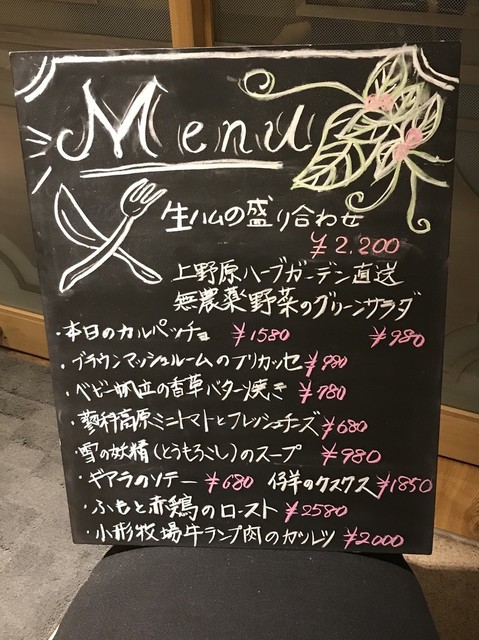 Menu
生ハムの盛り合わせ
¥2,200
上野原ハーブガーデン直送
無農薬野菜のグリーンサラダ
・本日のカルパッチョ ¥1580 ¥980
・ブラウンマッシュルームのフリカッセ ¥980
・ベビー帆立の香草バター焼き ¥780
・蓼科高原ミニトマトとフレッシュチーズ ¥680
・雪の妖精(とうもろこし)のスープ ¥980
・ギアラのソテー ¥680 仔羊のクスクス ¥1850
・ふもと赤鶏のロースト ¥2580
・小形牧場牛ランプ肉のカツレツ ¥2000